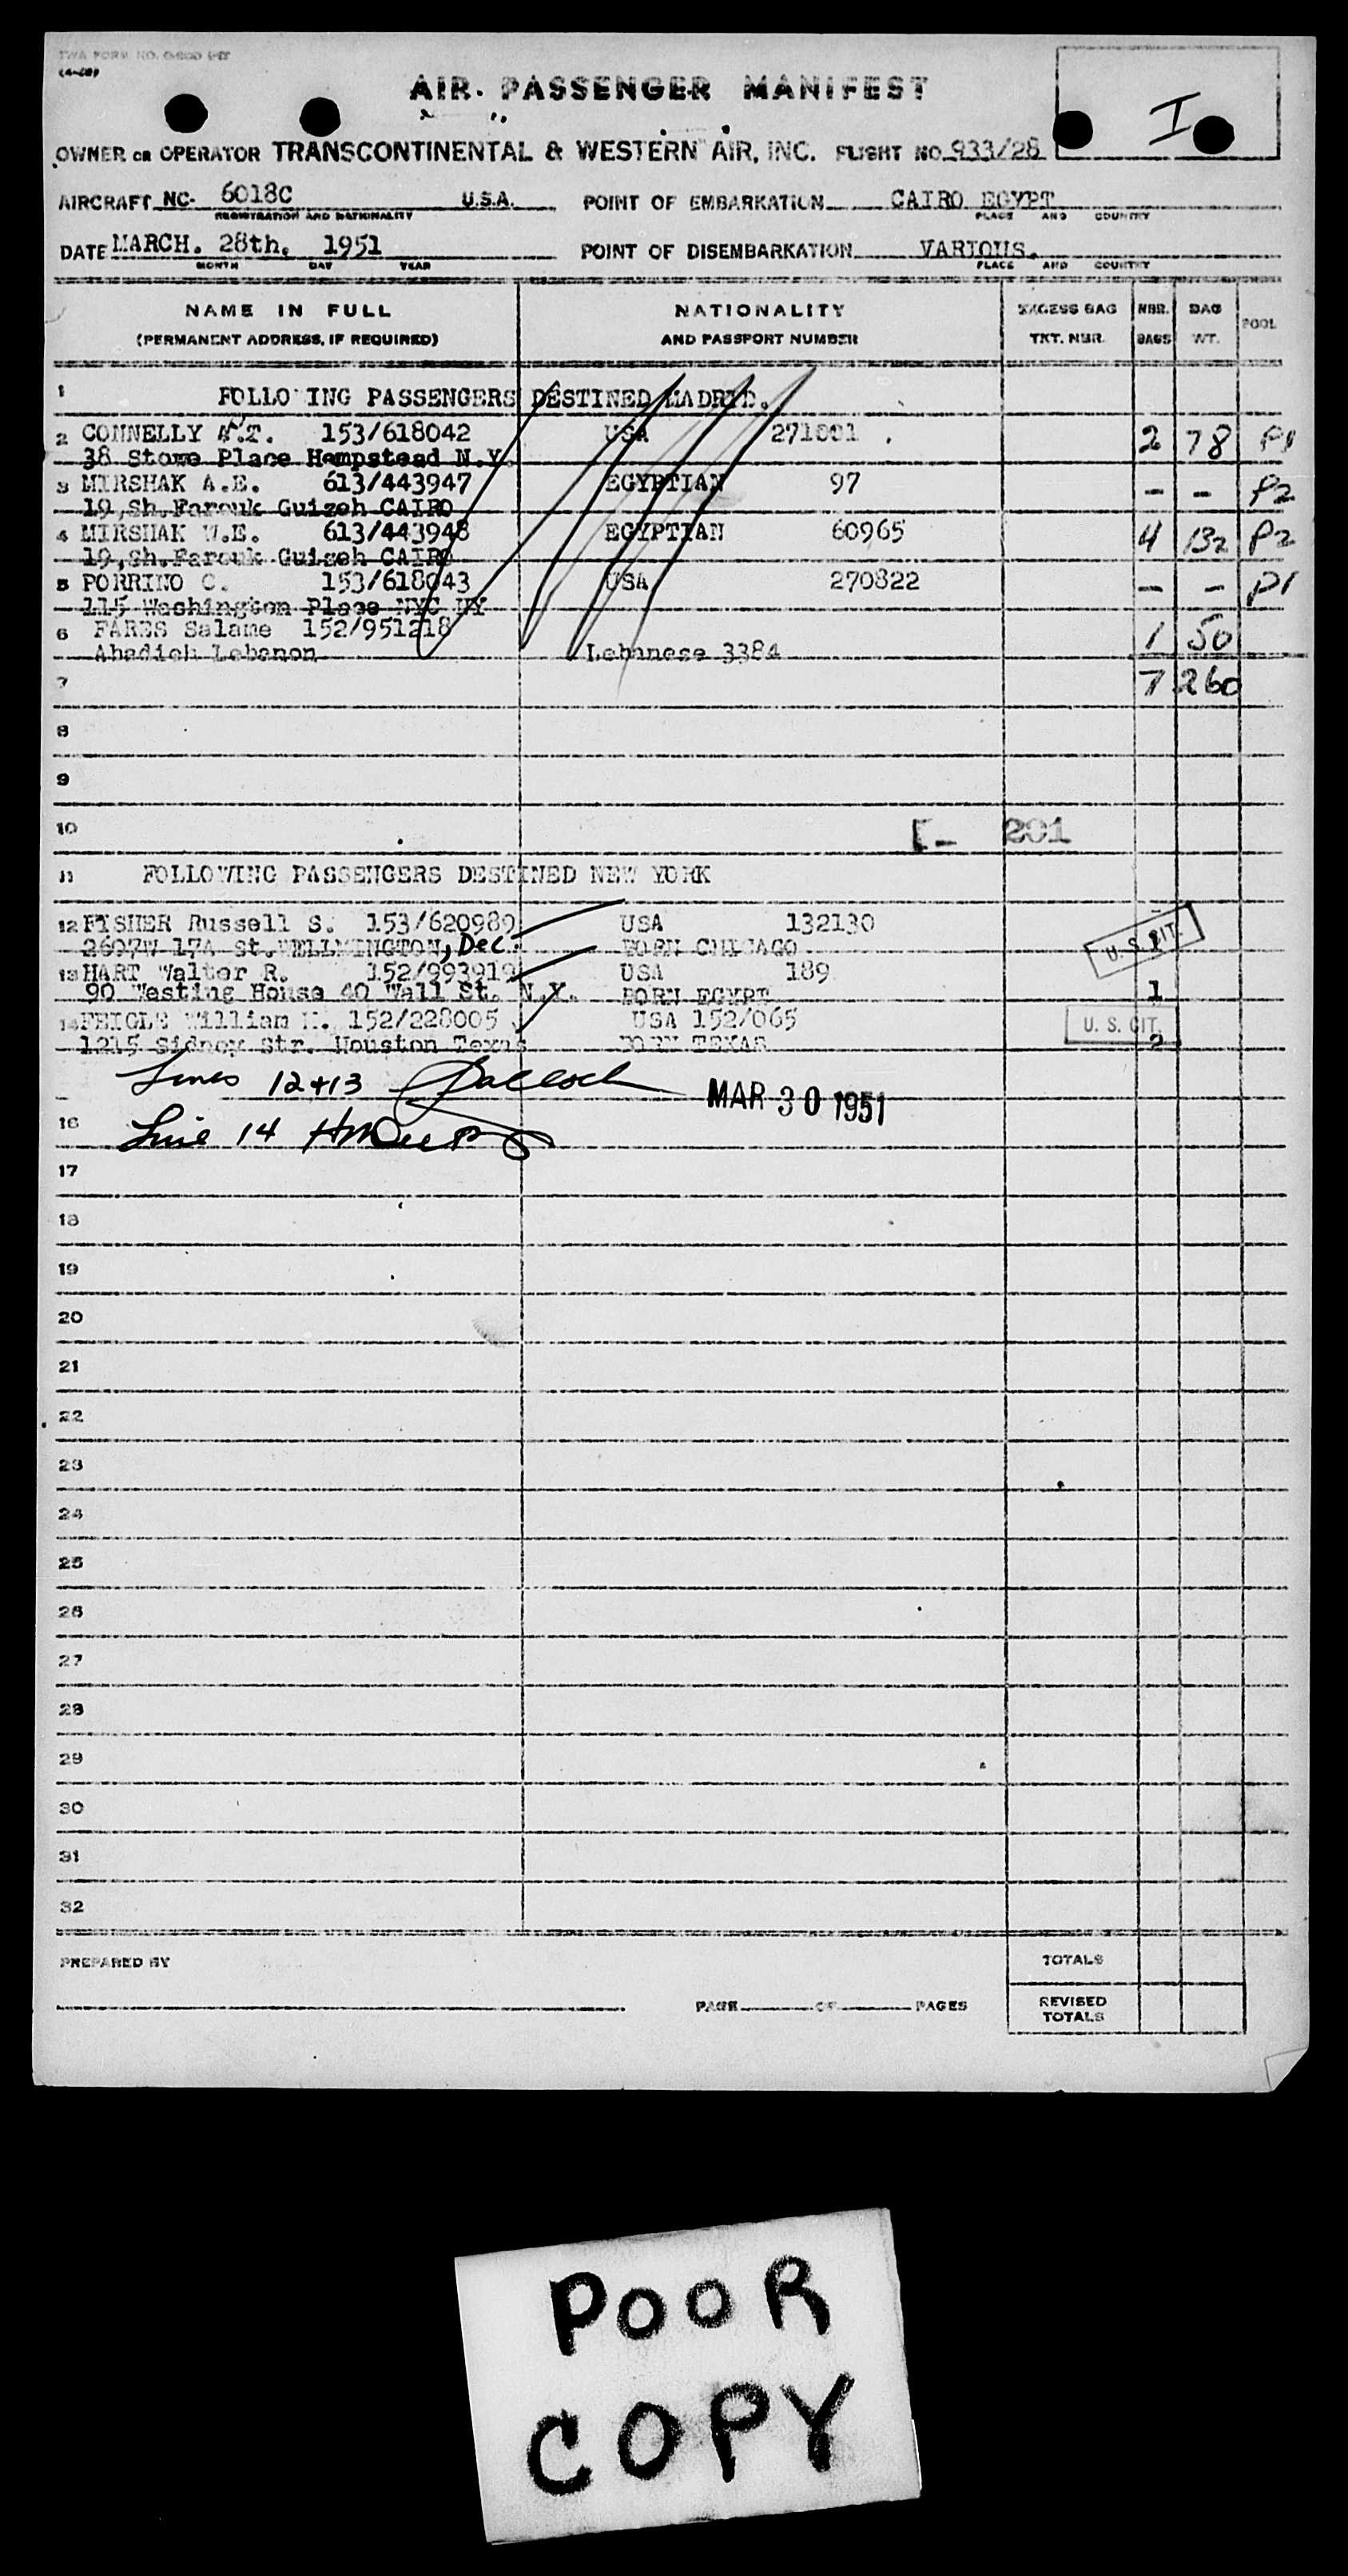 (4-49)
AIR PASSENGER MANIFEST
I
OWNER OR OPERATOR TRANSCONTINENTAL & WESTERN AIR, INC. FLIGHT NO. 933/28
AIRCRAFT NC- 6018C U.S.A. POINT OF EMBARKATION CAIRO EGYPT
REGISTRATION AND NATIONALITY PLACE AND COUNTRY
DATE MARCH. 28th. 1951 POINT OF DISEMBARKATION VARIOUS.
MONTH DAY YEAR PLACE AND COUNTRY
NAME IN FULL NATIONALITY EXCESS BAG NBR. BAG POOL
(PERMANENT ADDRESS, IF REQUIRED) AND PASSPORT NUMBER TKT. NBR. BAGS WT.
1 FOLLO ING PASSENGERS DESTINED MADRID.
2 CONNELLY .T. 153/618042 USA 2 78 P1
38 Stowe Place Hempstead N.Y.
3 MIRSHAK A.E. 613/443947 EGYPTIAN 97 - - P2
19,Sh.Farouk Guizeh CAIRO
4 MIRSHAK W.E. 613/443948 EGYPTIAN 60965 4 132 P2
19,Sh.Farouk Guizeh CAIRO
5 PORRINO C. 153/618043 USA 270822 - - P1
115 Washington Place NYC NY
6 FARES Salame 152/951218 1 50
Abadieh Lebanon Lebanese 3384
7 7 260
8
9
10 201
11 FOLLOWING PASSENGERS DESTINED NEW YORK
12 FISHER Russell S. 153/620989 USA 132130
St. WELLMINGTON, Dec. BORN CHICAGO U. S. CIT. 1
13 HART Walter R. 152/993919 USA 189
90 Westing House 40 Wall St. N.Y. BORN EGYPT 1
14 FEIGLE William M. 152/228005 USA 152/065 U. S. CIT.
1215 Sidney Str. Houston Texas BORN TEXAS 2
Lines 12+13
MAR 30 1951
16 Line 14
17
18
19
20
21
22
23
24
25
26
27
28
29
30
31
32
PREPARED BY TOTALS
PAGE OF PAGES REVISED TOTALS
POOR
COPY